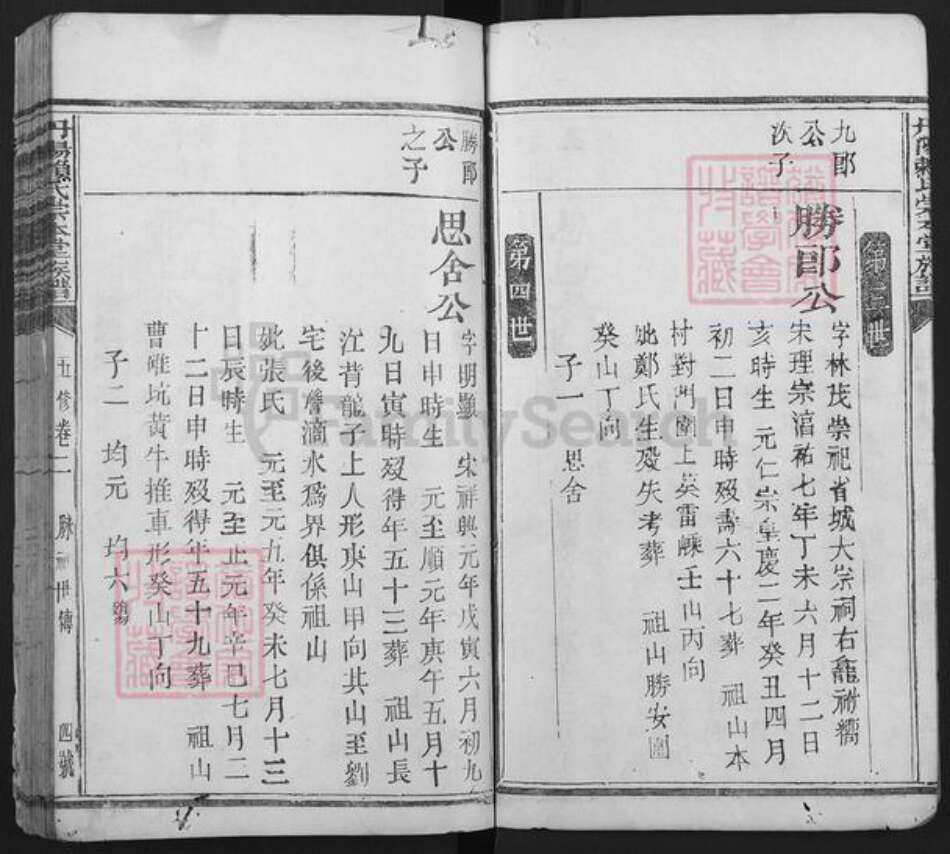 第三世
九郎
公
次子
勝郎公
字林茂崇祀省城大宗祠右龕祔嚮
宋理宗淳祐七年丁未六月十二日
亥時生 元仁宗皇慶二年癸丑四月
初二日申時歿壽六十七葬 祖山本
村對門
上英雷
壬山丙向
妣鄭氏生歿失考葬 祖山勝安圍
癸山丁向
子一 思舍
第四世
勝郎
公
之子
思舍公
字明顯 宋祥興元年戊寅六月初九
日申時生 元至順元年庚午五月十
九日寅時歿得年五十三葬 祖山長
江背龍子上人形庚山甲向共山至劉
宅後簷滴水爲界俱係祖山
妣張氏 元至元九年癸未七月十三
日辰時生 元至正元年辛巳七月二
十二日申時歿得年五十九葬 祖山
曹碓坑黃牛推車形癸山丁向
子二 均元 均六
丹陽賴氏崇本堂族譜
五修卷二
世傳
四號
FamilySearch